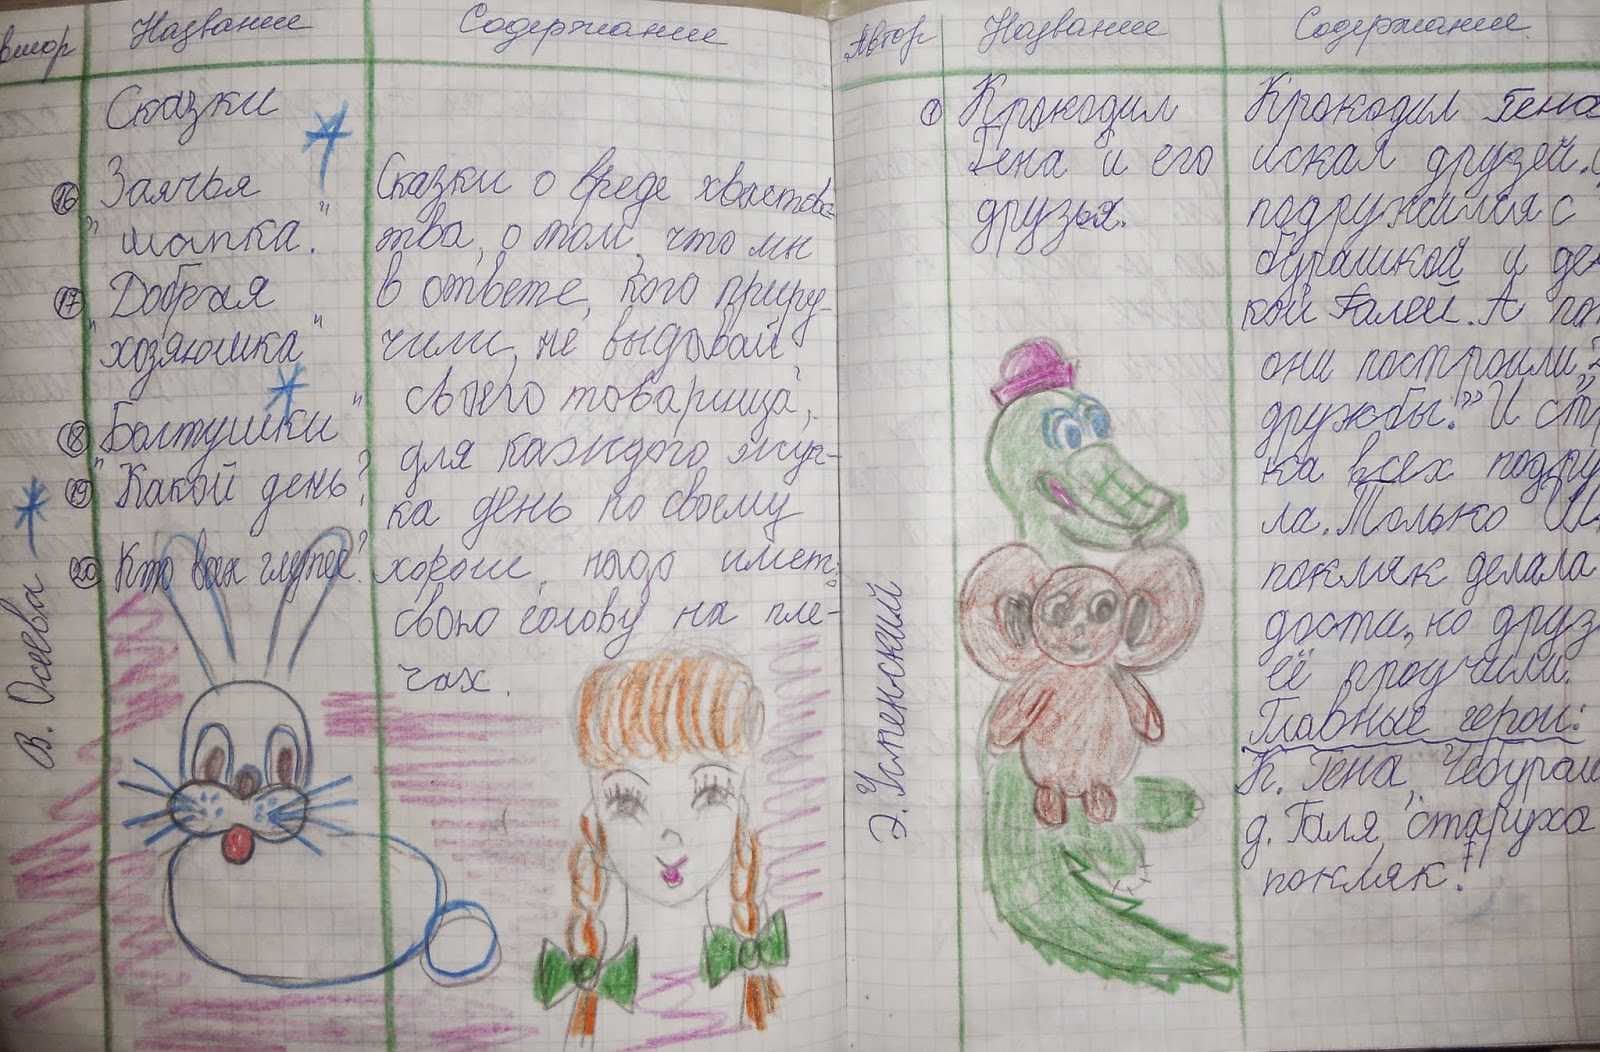 втор Название Содержание
Сказки
16 Заячья
"шапка."
17 Добрая
"хозяюшка"
18 Болтушки"
19 "Какой день?
20 Кто всех глупее?
В. Осеева
Сказки о вреде хвастовс-
тва, о том, что мы
в ответе, кого приру-
чили, не выдавай
своего товарища,
для каждого жуч-
ка день по своему
хорош, надо иметь
свою голову на пле-
чах.
Автор Название Содержание.
1 Крокодил
Гена и его
друзья.
Э. Успенский
Крокодил Гена
искал друзей.
подружился с
бурашкой и де
кой Галей. А по
они построили
дружбы." И ст
ка всех подру
ла. Только Ша
покляк делала
дости, но друз
её проучили.
Главные герои:
К. Гена, Чебураш
д. Галя, старуха
покляк.